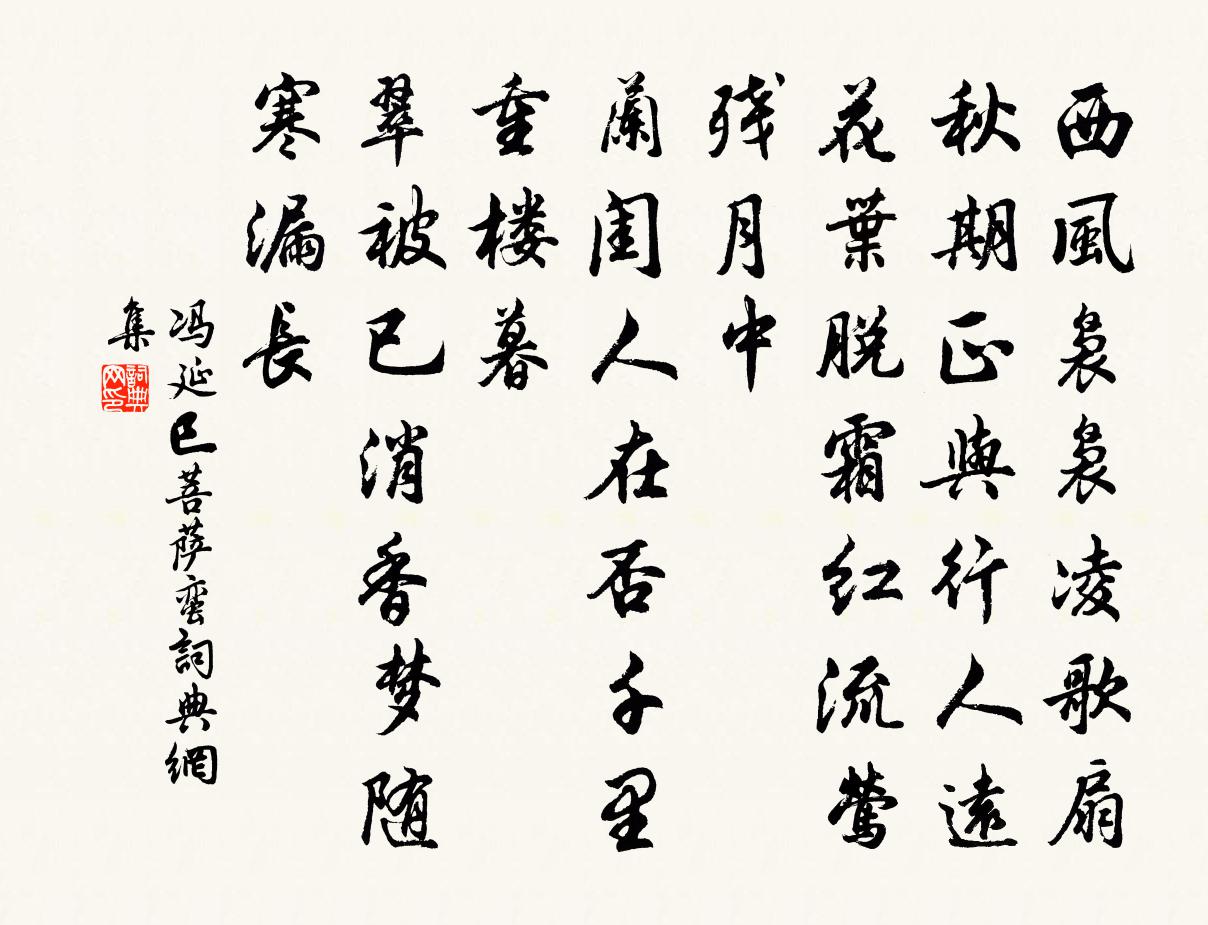 西風袅袅凌歌扇
秋期正與行人遠
花葉脱霜红流莺
残月中
蘭闺人在否千里
重楼暮
翠被已消香梦随
寒漏長
冯延巳菩萨蛮詞典網
集
詞典网印